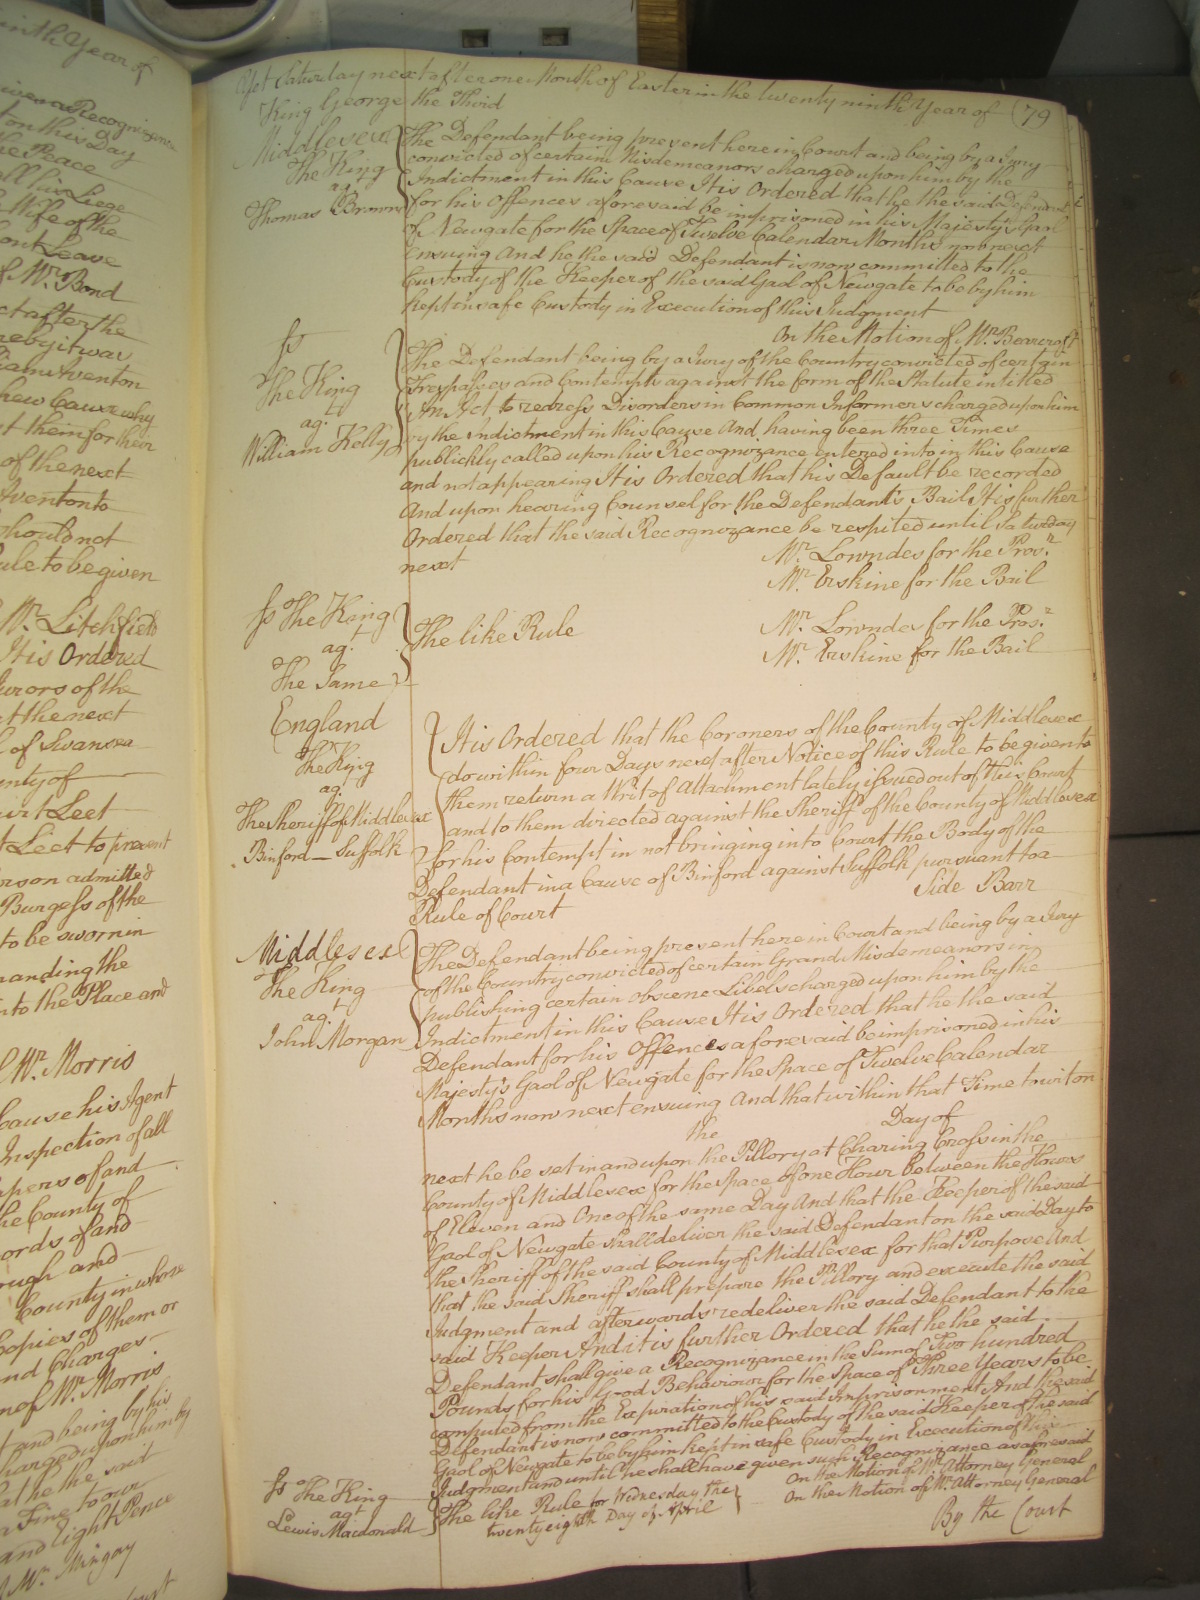 inth Year of
ton this Day
the Peace
all his Liege
Wife of the
out Leave
Mr. Bond
ct after the
reby it was
iam Aventon
hew Cause why
t them for their
of the next
Aventon to
should not
ule to be given
Mr. Litchfield
It is Ordered
Jurors of the
at the next
of Swansea
unty of
urt Leet
t Leet to present
erson admitted
Burgess of the
to be sworn in
manding the
nto the Place and
Mr. Morris
Cause his Agent
Inspection of all
pers of and
he County of
ords of and
rough and
County in whose
opies of them or
nd Charges
n of Mr. Morris
t and being by his
harged upon him by
at he the said
a Fine to our
and Eight Pence
Mr. Mingay
Yet Saturday next after one Month of Easter in the twenty ninth Year of
King George the Third
79
Middlesex
The King
agt.
Thomas Brown
The Defendant being present here in Court and being by a Jury
convicted of certain Misdemeanors charged upon him by the
Indictment in this Cause It is Ordered that he the said Defendant
for his Offences aforesaid be imprisoned in his Majesty's Gaol
of Newgate for the Space of Twelve Calendar Months now next
ensuing And he the said Defendant is now committed to the
Custody of the Keeper of the said Gaol of Newgate to be by him
kept in safe Custody in Execution of this Judgment
On the Motion of Mr. Bearcroft
Ss
The King
agt.
William Kelly
The Defendant being by a Jury of the Country convicted of certain
Trespasses and Contempts against the form of the Statute intitled
An Act to redress Disorders in Common Informers charged upon him
by the Indictment in this Cause And having been three Times
publickly called upon his Recognizance entered into in this Cause
and not appearing It is Ordered that his Default be recorded
And upon hearing Counsel for the Defendant's Bail It is further
Ordered that the said Recognizance be respited until Saturday
next
Mr. Lowndes for the Prosr.
Mr. Erskine for the Bail
Ss The King
agt.
The Same
The like Rule
Mr. Lowndes for the Prosr.
Mr. Erskine for the Bail
England
The King
agt.
The Sheriff of Middlesex
Binford — Suffolk
It is Ordered that the Coroners of the County of Middlesex
do within four Days next after Notice of this Rule to be given to
them return a Writ of Attachment lately issued out of this Court
and to them directed against the Sheriff of the County of Middlesex
for his Contempt in not bringing into Court the Body of the
Defendant in a Cause of Binford against Suffolk pursuant to a
Rule of Court
Side Barr
Middlesex
The King
agt.
John Morgan
The Defendant being present here in Court and being by a Jury
of the Country convicted of certain Grand Misdemeanors in
publishing certain obscene Libels charged upon him by the
Indictment in this Cause It is Ordered that he the said
Defendant for his Offences aforesaid be imprisoned in his
Majesty's Gaol of Newgate for the Space of Twelve Calendar
Months now next ensuing And that within that Time towit on
the Day of
next he be set in and upon the Pillory at Charing Cross in the
County of Middlesex for the Space of one Hour between the Hours
of Eleven and One of the same Day And that the Keeper of the said
Gaol of Newgate shall deliver the said Defendant on the said Day to
the Sheriff of the said County of Middlesex for that Purpose And
that the said Sheriff shall prepare the Pillory and execute the said
Judgment and afterwards redeliver the said Defendant to the
said Keeper And it is further Ordered that he the said
Defendant shall give a Recognizance in the Sum of Two hundred
Pounds for his Good Behaviour for the Space of Three Years to be
computed from the Expiration of his said Imprisonment And the said
Defendant is now committed to the Custody of the said Keeper of the said
Gaol of Newgate to be by him kept in safe Custody in Execution of this
Judgment and until he shall have given such Recognizance as aforesaid
On the Motion of Mr. Attorney General
Ss The King
agt
Lewis Macdonald
The like Rule for Wednesday the
twenty eighth Day of April
On the Motion of Mr. Attorney General
By the Court